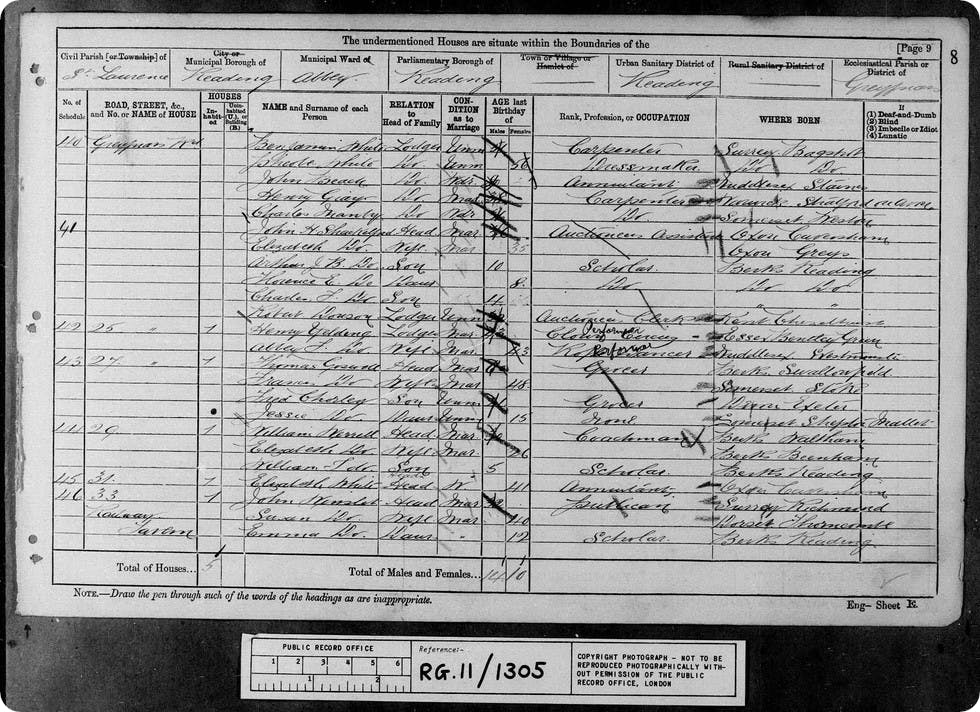 The undermentioned Houses are situate within the Boundaries of the
[Page 9
8
Civil Parish [or Township] of
City or Municipal Borough of
Municipal Ward of
Parliamentary Borough of
Town or Village or Hamlet of
Urban Sanitary District of
Rural Sanitary District of
Ecclesiastical Parish or District of
St. Laurence Reading Abbey Reading Reading Greyfriars
No. of Schedule
ROAD, STREET, &c., and No. or NAME of HOUSE
HOUSES
Inhabited
Uninhabited (U.), or Building (B.)
NAME and Surname of each Person
RELATION to Head of Family
CONDITION as to Marriage
AGE last Birthday of
Males Females
Rank, Profession, or OCCUPATION
WHERE BORN
If
(1) Deaf-and-Dumb
(2) Blind
(3) Imbecile or Idiot
(4) Lunatic
40 Greyfriars Rd Benjamin White Lodger Unm Carpenter Surrey Bagshot
White Do Unm 56 Dressmaker Do Do
John Do Widr Annuitant Middlesex Staines
Henry Do Mar Carpenter
Charles Manly Do Widr Do Somerset Weston
41 John H Shackelford Head Mar Auctioneers Assistant Oxon Caversham
Elizabeth Do. Wife Mar 35 Oxon Greys
Arthur J. B. Do. Son 10 Scholar Berks Reading
Florence E. Do Daur 8 Do Do Do
Charles F. Do Son 4 " "
Robert Lodger Unm Auctioneer Clerk Kent
42 25 " 1 Henry Lodger Mar Clown Circus Performer Essex Bentley Green
Do. Wife Mar 43 Rope Dancer Performer Middlesex Westminster
43 27 " 1 Thomas Head Mar Grocer Berks Swallowfield
Frances Do Wife Mar 48 Somerset Stoke
Fred Charley Son Unm Grocer Devon Exeter
Jessie Do. Daur Unm 15 None Somerset Shepton Mallet
44 29 1 William Head Mar Coachman Berks Waltham
Elizabeth Do Wife Mar 26 Berks Beenham
William T do Son 5 Scholar Berks Reading
45 31 1 Elizabeth White Head W 41 Annuitant Oxon
46 33 1 John Head Mar Publican Surrey Richmond
Railway Susan Do Wife Mar 40 Dorset
Tavern Emma Do. Daur " 12 Scholar Berks Reading
Total of Houses... 5 Total of Males and Females... 14 10
NOTE.—Draw the pen through such of the words of the headings as are inappropriate.
Eng— Sheet E.
PUBLIC RECORD OFFICE
1 2 3 4 5 6
1 2
Reference:-
RG.11/1305
COPYRIGHT PHOTOGRAPH - NOT TO BE
REPRODUCED PHOTOGRAPHICALLY WITH-
OUT PERMISSION OF THE PUBLIC
RECORD OFFICE, LONDON